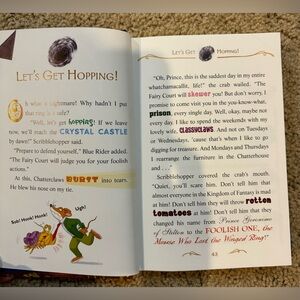 LET'S GET HOPPING!
Oh, what a nightmare! Why hadn't I put
that ring in a safe?
"Well, let's get hopping! If we leave
now, we'll reach the CRYSTAL CASTLE
by dawn!" Scribblehopper said.
"Prepare to defend yourself," Blue Rider added.
"The Fairy Court will judge you for your foolish
actions."
At this, Chatterclaws BURST into tears.
He blew his nose on my tie.
Sob! Honk! Honk!
Ugh!
LET'S GET HOPPING!
"Oh, Prince, this is the saddest day in my entire
whatchamacallit, life!" the crab wailed. "The
Fairy Court will skewer you! But don't worry, I
promise to come visit you in the you-know-what,
prison, every single day. Well, okay, maybe not
every day. I like to spend the weekends with my
lovely wife, CLASSYCLAWS. And not on Tuesdays
or Wednesdays, 'cause that's when I like to go
digging for treasure. And Mondays and Thursdays
I rearrange the furniture in the Chatterhouse
and . . ."
Scribblehopper covered the crab's mouth.
"Quiet, you'll scare him. Don't tell him that almost
everyone in the Kingdom of Fantasy is mad
at him! Don't tell him they will throw rotten
tomatoes at him! Don't tell him that they
changed his name from Prince Geronimo
of Stilton to the FOOLISH ONE, the
Mouse Who Lost the Winged Ring!"
43